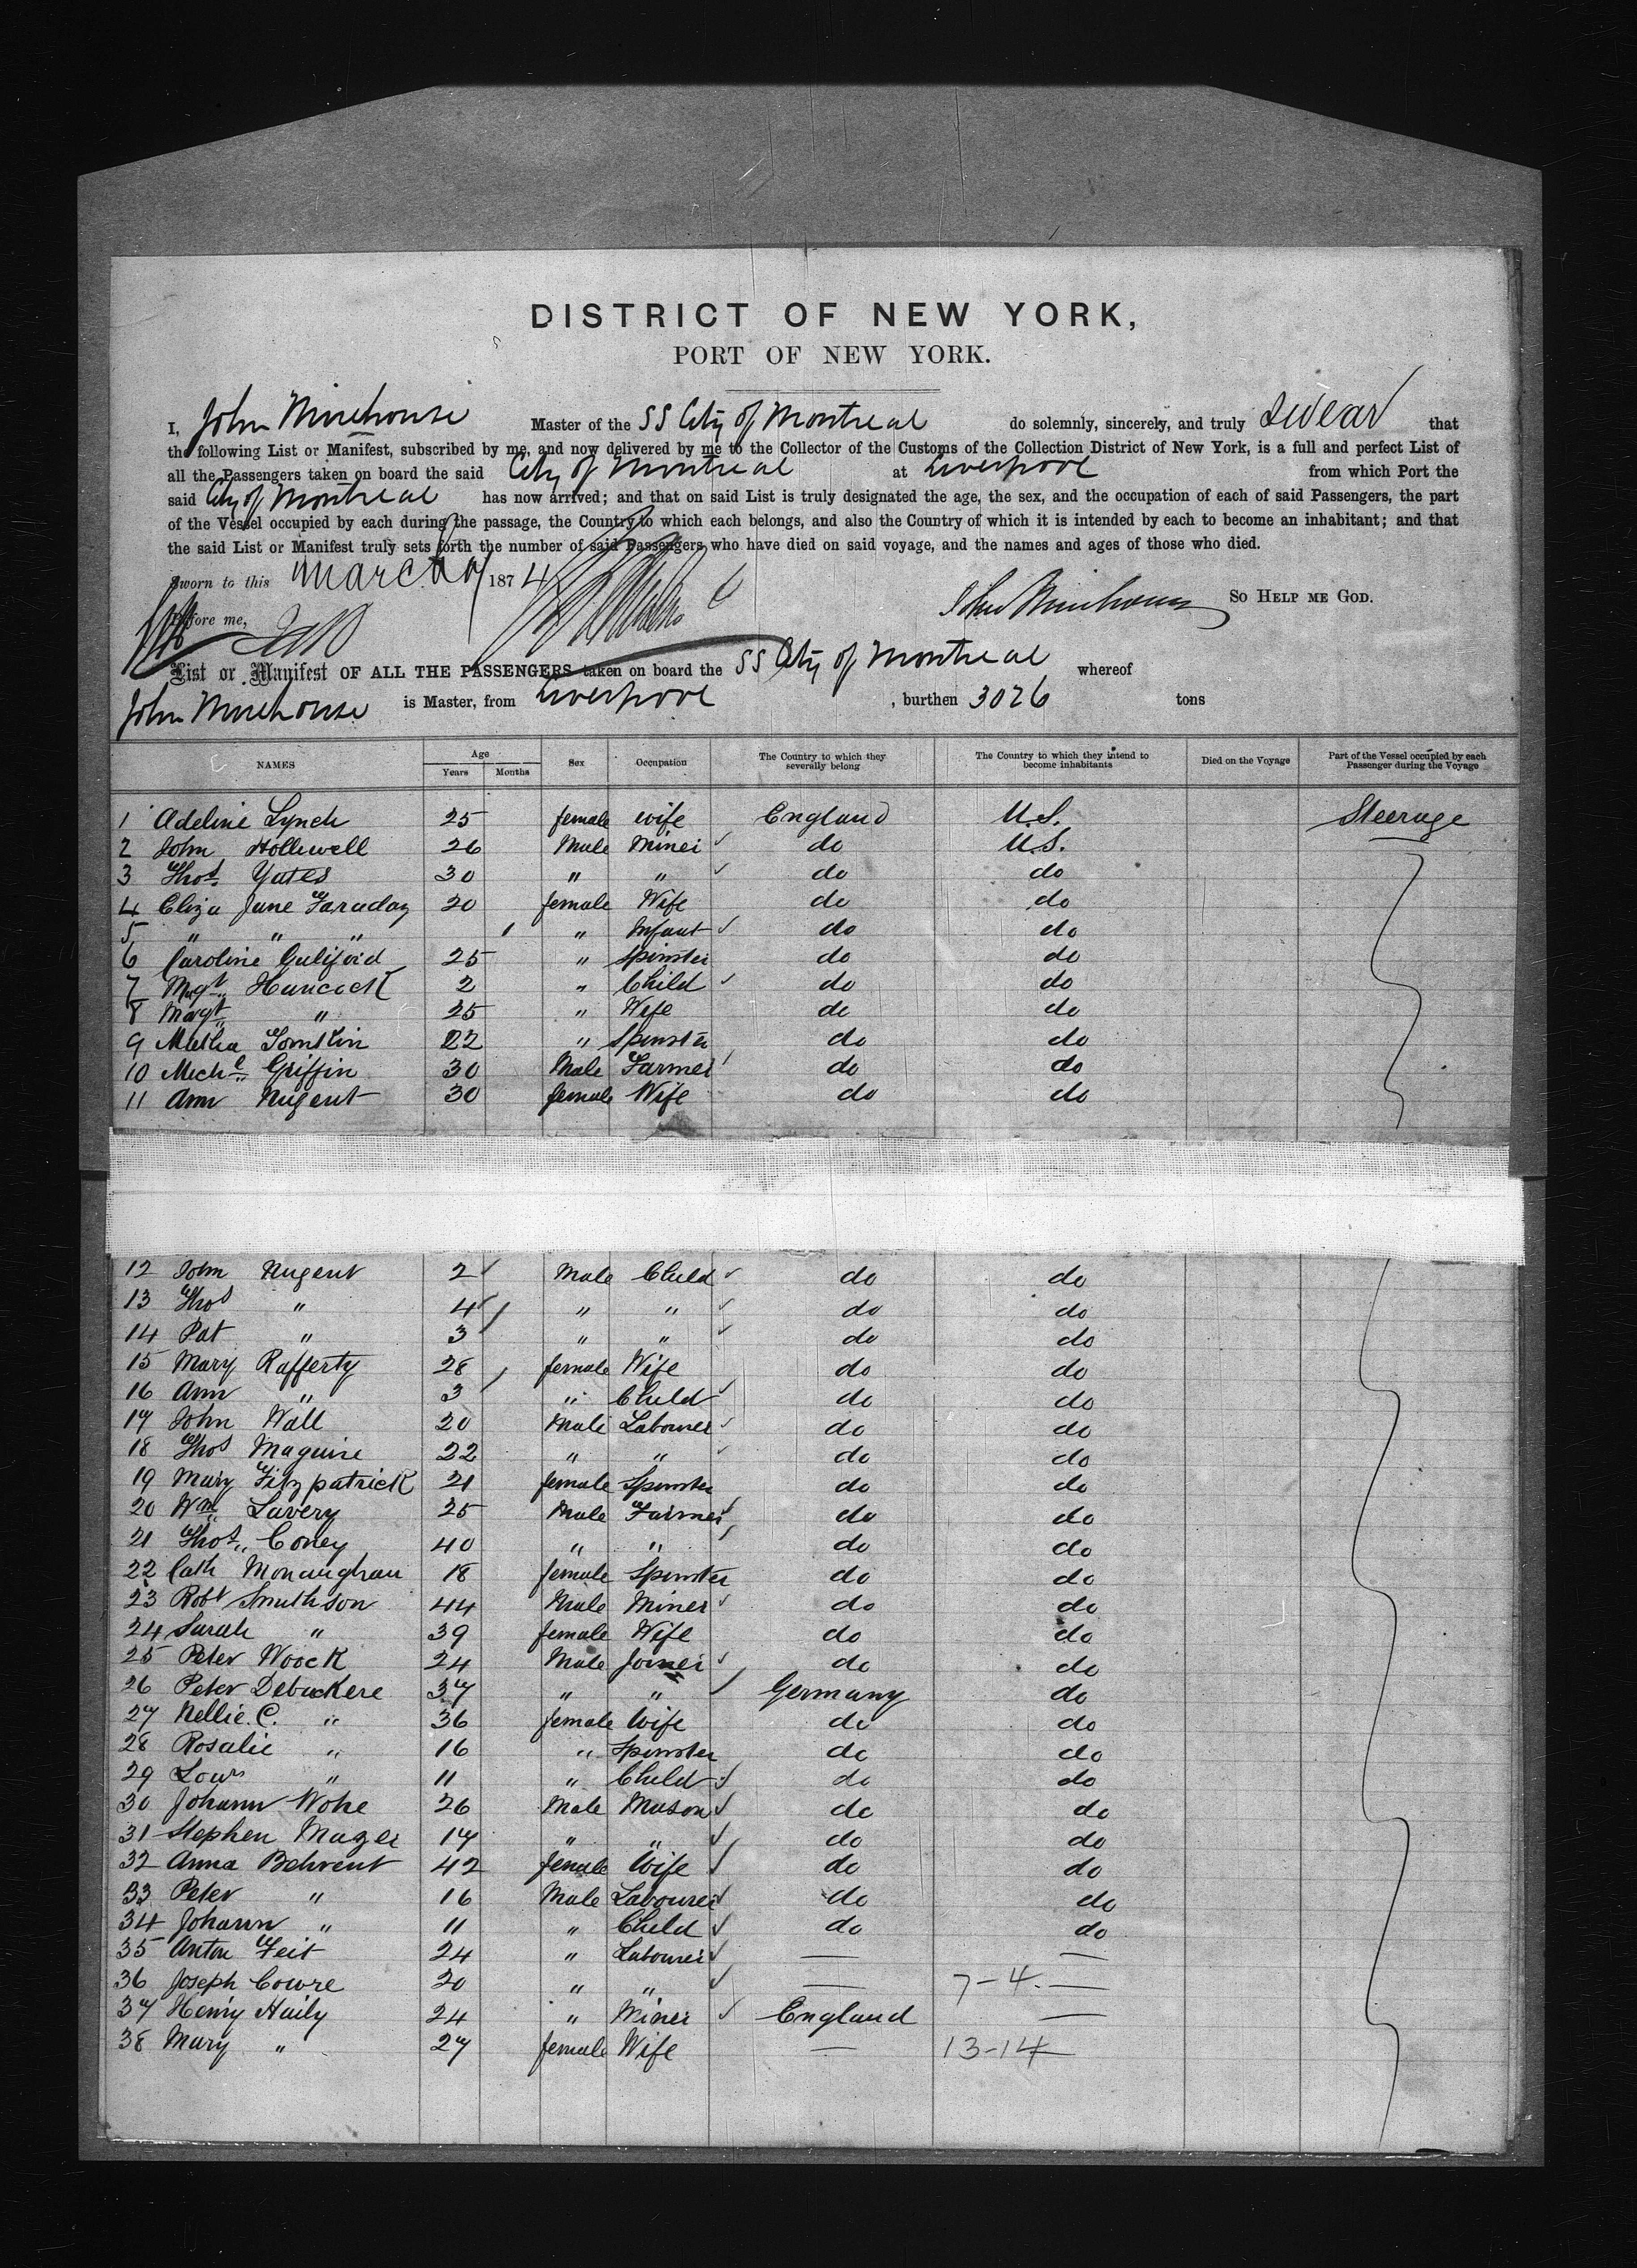 DISTRICT OF NEW YORK,
PORT OF NEW YORK.
I, John Mirehouse Master of the SS City of Montreal do solemnly, sincerely, and truly swear that
the following List or Manifest, subscribed by me, and now delivered by me to the Collector of the Customs of the Collection District of New York, is a full and perfect List of
all the Passengers taken on board the said City of Montreal at Liverpool from which Port the
said City of Montreal has now arrived; and that on said List is truly designated the age, the sex, and the occupation of each of said Passengers, the part
of the Vessel occupied by each during the passage, the Country to which each belongs, and also the Country of which it is intended by each to become an inhabitant; and that
the said List or Manifest truly sets forth the number of said Passengers who have died on said voyage, and the names and ages of those who died.
Sworn to this March 1874
John Mirehouse SO HELP ME GOD.
Before me,
List or Manifest OF ALL THE PASSENGERS taken on board the SS City of Montreal whereof
John Mirehouse is Master, from Liverpool , burthen 3026 tons
NAMES Age Years Months Sex Occupation The Country to which they severally belong The Country to which they intend to become inhabitants Died on the Voyage Part of the Vessel occupied by each Passenger during the Voyage
1 Adeline Lynch 25 female wife England U.S. Steerage
2 John Holliwell 26 Male Miner do U.S.
3 Thos. Yates 30 " " do do
4 Eliza Jane Faraday 20 female Wife do do
5 " " " 1 " Infant do do
6 Caroline 25 " Spinster do do
7 Magt Hancock 2 " Child do do
8 Margt " 25 " Wife do do
9 Tomlin 22 " Spinster do do
10 Michl Griffin 30 Male Farmer do do
11 Ann Nugent 30 female Wife do do
12 John Nugent 2 Male Child do do
13 Thos " 4 " " do do
14 Pat " 3 " " do do
15 Mary Rafferty 28 female Wife do do
16 Ann " 3 " Child do do
17 John Wall 20 Male Labourer do do
18 Thos Maguire 22 " " do do
19 Mary Fitzpatrick 21 female Spinster do do
20 Wm Lavery 25 Male Farmer do do
21 Thos. Coney 40 " " do do
22 Cath Monaughan 18 female Spinster do do
23 Robt Smithson 44 Male Miner do do
24 Sarah " 39 female Wife do do
25 Peter Woock 24 Male Joiner do do
26 Peter Debuckere 37 " " Germany do
27 Nellie C. " 36 female Wife do do
28 Rosalie " 16 " Spinster do do
29 Louis " 11 " Child do do
30 Johann Wohe 26 Male Mason do do
31 Stephen Mazer 17 " " do do
32 Anna Behrent 42 female Wife do do
33 Peter " 16 Male Labourer do do
34 Johann " 11 " Child do do
35 Anton Feit 24 " Labourer — —
36 Joseph Cowre 20 " " — 7-4. —
37 Henry Haily 24 " Miner England —
38 Mary " 27 female Wife — 13-14